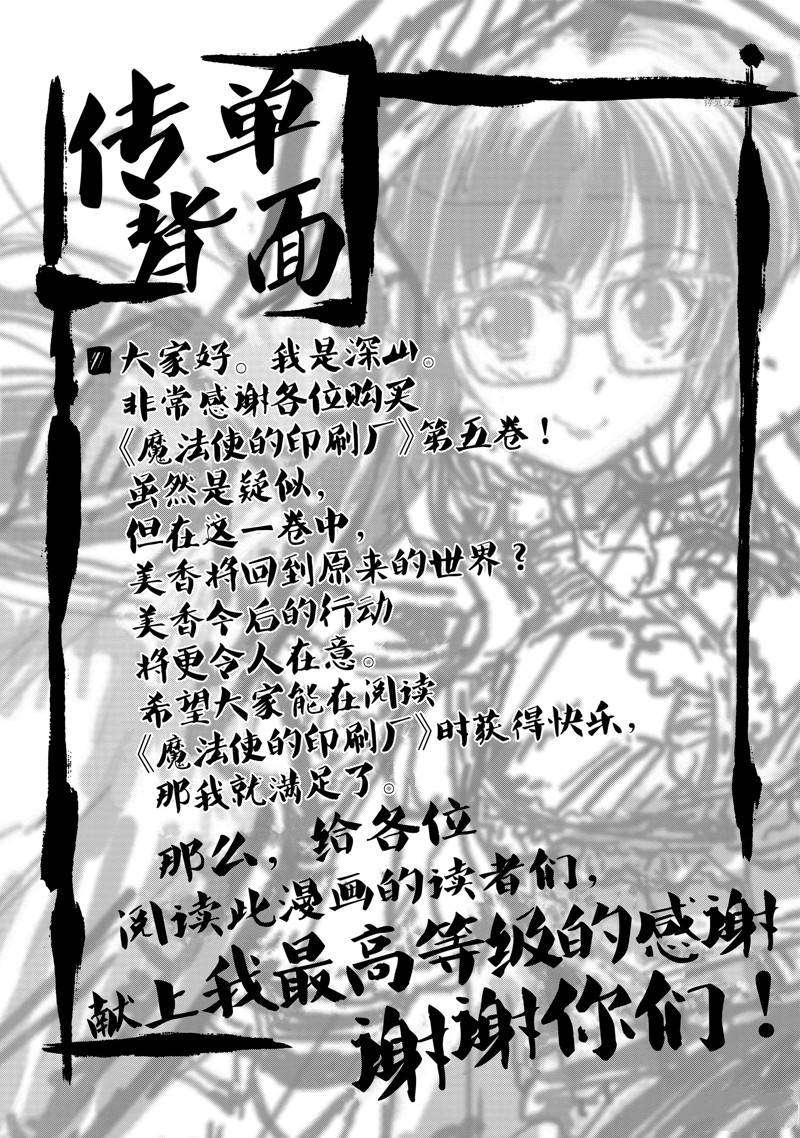 传单
背面
大家好。我是深山。
非常感谢各位购买
《魔法使的印刷厂》第五卷！
虽然是疑似，
但在这一卷中，
美香将回到原来的世界？
美香今后的行动
将更令人在意。
希望大家能在阅读
《魔法使的印刷厂》时获得快乐，
那我就满足了。
那么，给各位
阅读此漫画的读者们，
献上我最高等级的感谢
谢谢你们！